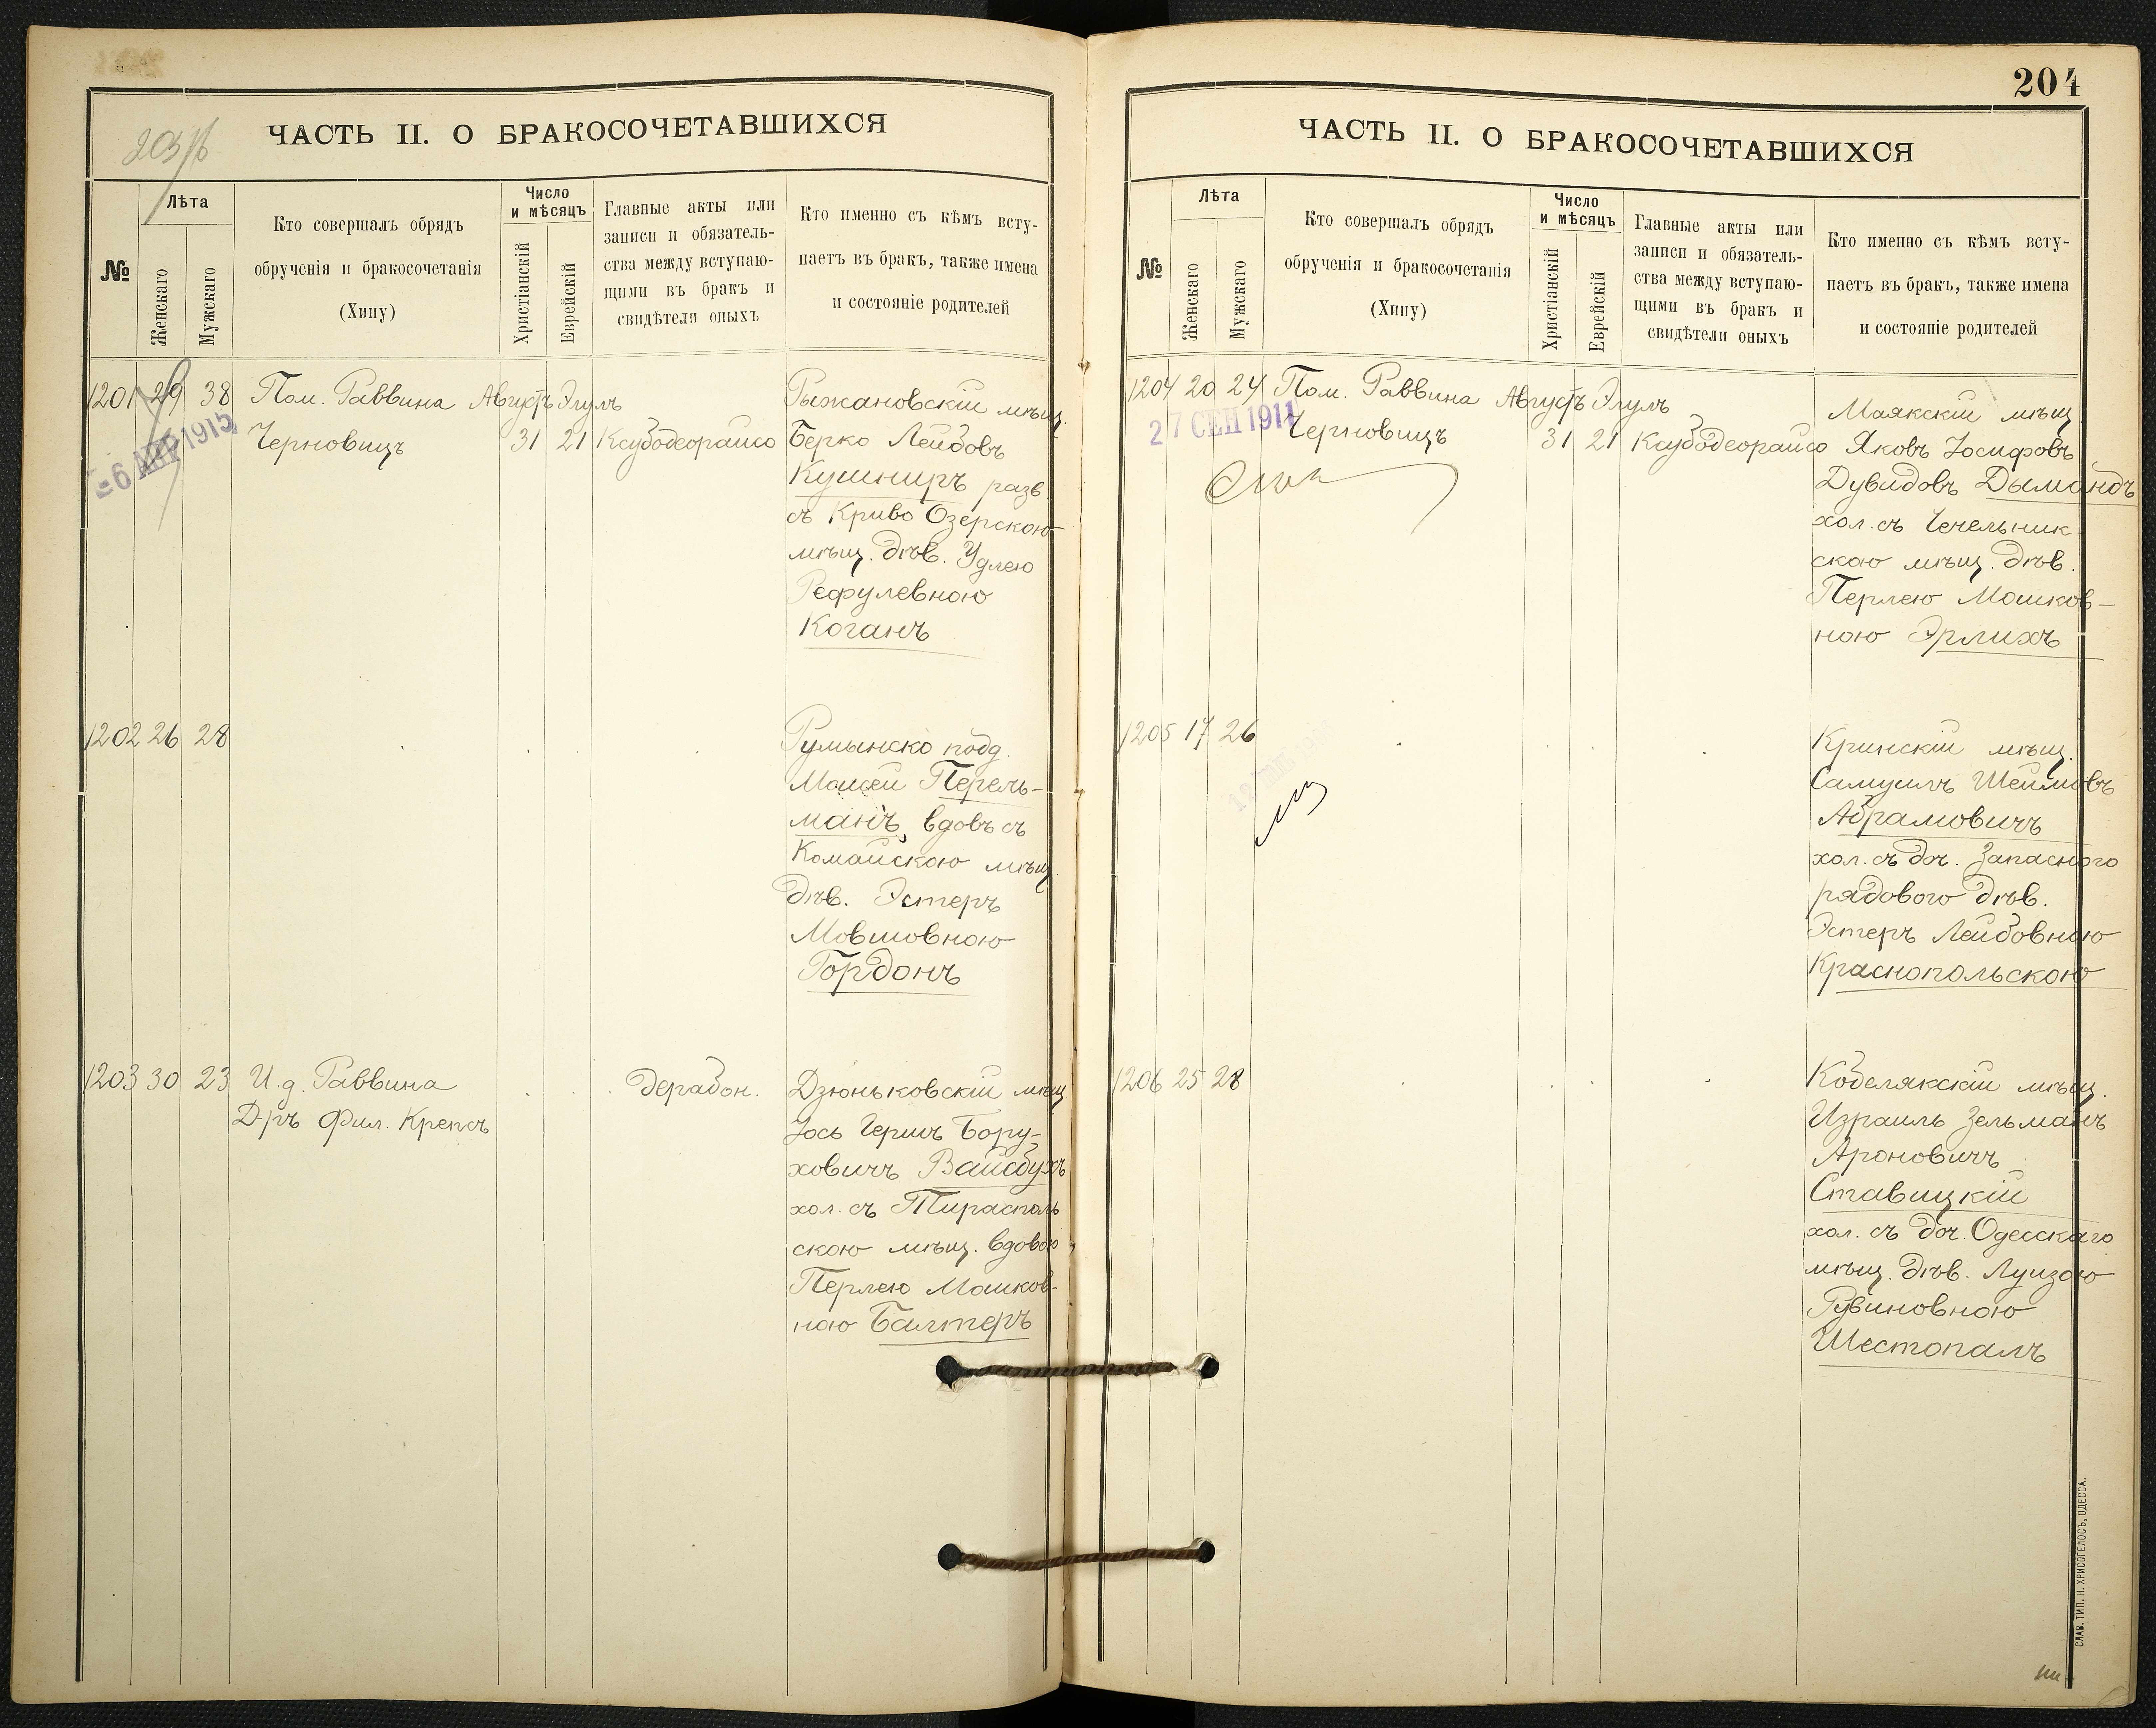 204
203/б
ЧАСТЬ II. О БРАКОСОЧЕТАВШИХСЯ
№
Лѣта
Женскаго
Мужскаго
Кто совершалъ обрядъ
обрученія и бракосочетанія
(Хипу)
Число
и мѣсяцъ
Христіанскій
Еврейскій
Главные акты или
записи и обязатель-
ства между вступаю-
щими въ бракъ и
свидѣтели оныхъ
Кто именно съ кѣмъ всту-
паетъ въ бракъ, также имена
и состояніе родителей
1201 29 38 Пом. Раввина Августъ Элулъ
Черновицъ 31 21 Ксубодеорайсо
6 АПР 1915
Рыжановскій мѣщ.
Берко Лейбовъ
Кушниръ разв.
съ Криво Озерскою
мѣщ. дѣв. Удлею
Рефулевною
Коганъ
1202 26 28
Румынско подд.
Моисей Перель-
манъ, вдовъ съ
Комайскою мѣщ.
дѣв. Эстеръ
Мовшовною
Гордонъ
1203 30 23 И.д. Раввина
Д-ръ Фил. Крепсъ
дерабон.
Дзюньковскій мѣщ.
Іось Гершъ Бору-
ховичъ Вайсбухъ
хол. съ Тирасполь
скою мѣщ. вдовою
Перлею Мошков-
ною Балтеръ
ЧАСТЬ II. О БРАКОСОЧЕТАВШИХСЯ
№
Лѣта
Женскаго
Мужскаго
Кто совершалъ обрядъ
обрученія и бракосочетанія
(Хипу)
Число
и мѣсяцъ
Христіанскій
Еврейскій
Главные акты или
записи и обязатель-
ства между вступаю-
щими въ бракъ и
свидѣтели оныхъ
Кто именно съ кѣмъ всту-
паетъ въ бракъ, также имена
и состояніе родителей
1204 20 24 Пом. Раввина Августъ Элулъ
Черновицъ 31 21 Ксубодеорайсо
27 СЕН 1911
Маякскій мѣщ
Яковъ Іосифовъ
Дувидовъ Дымандъ
хол. съ Чечельник
скою мѣщ. дѣв.
Перлею Мошков-
ною Эрлихъ
1205 17 26
Кринскій мѣщ.
Самуилъ Шеймовъ
Абрамовичъ
хол. съ доч. Запасного
рядового дѣв.
Эстеръ Лейбовною
Краснопольскою
1206 25 28
Кобелякскій мѣщ.
Израиль Зельманъ
Ароновичъ
Ставицкій
хол. съ доч. Одесскаго
мѣщ. дѣв. Луизою
Рувиновною
Шестопалъ
СЛАВ. ТИП. Н. ХРИСОГЕЛОСЪ, ОДЕССА.